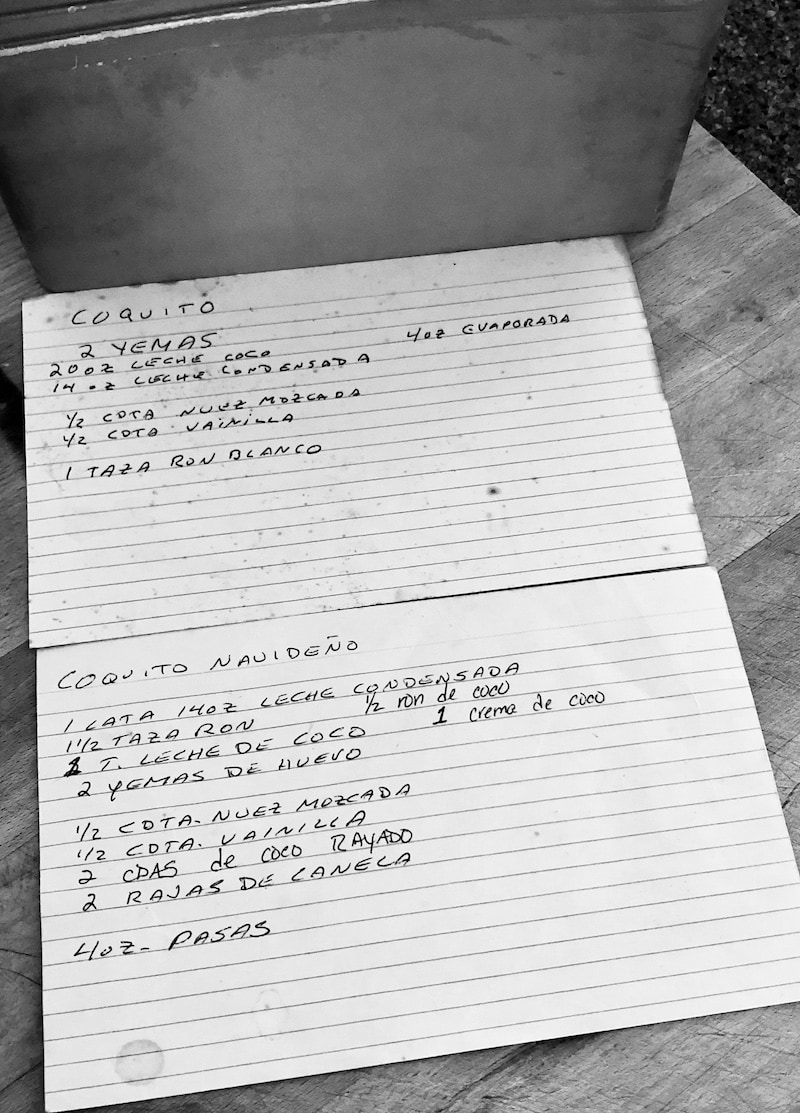 COQUITO
2 YEMAS
20 OZ LECHE COCO 4OZ EVAPORADA
14 OZ LECHE CONDENSADA
1/2 CDTA NUEZ MOZCADA
1/2 CDTA VAINILLA
1 TAZA RON BLANCO
COQUITO NAVIDEÑO
1 LATA 14OZ LECHE CONDENSADA
1 1/2 TAZA RON 1/2 ron de coco
1 T. LECHE DE COCO 1 crema de coco
2 YEMAS DE HUEVO
1/2 CDTA. NUEZ MOZCADA
1/2 CDTA. VAINILLA
2 CDAS de coco RAYADO
2 RAJAS DE CANELA
4OZ- PASAS